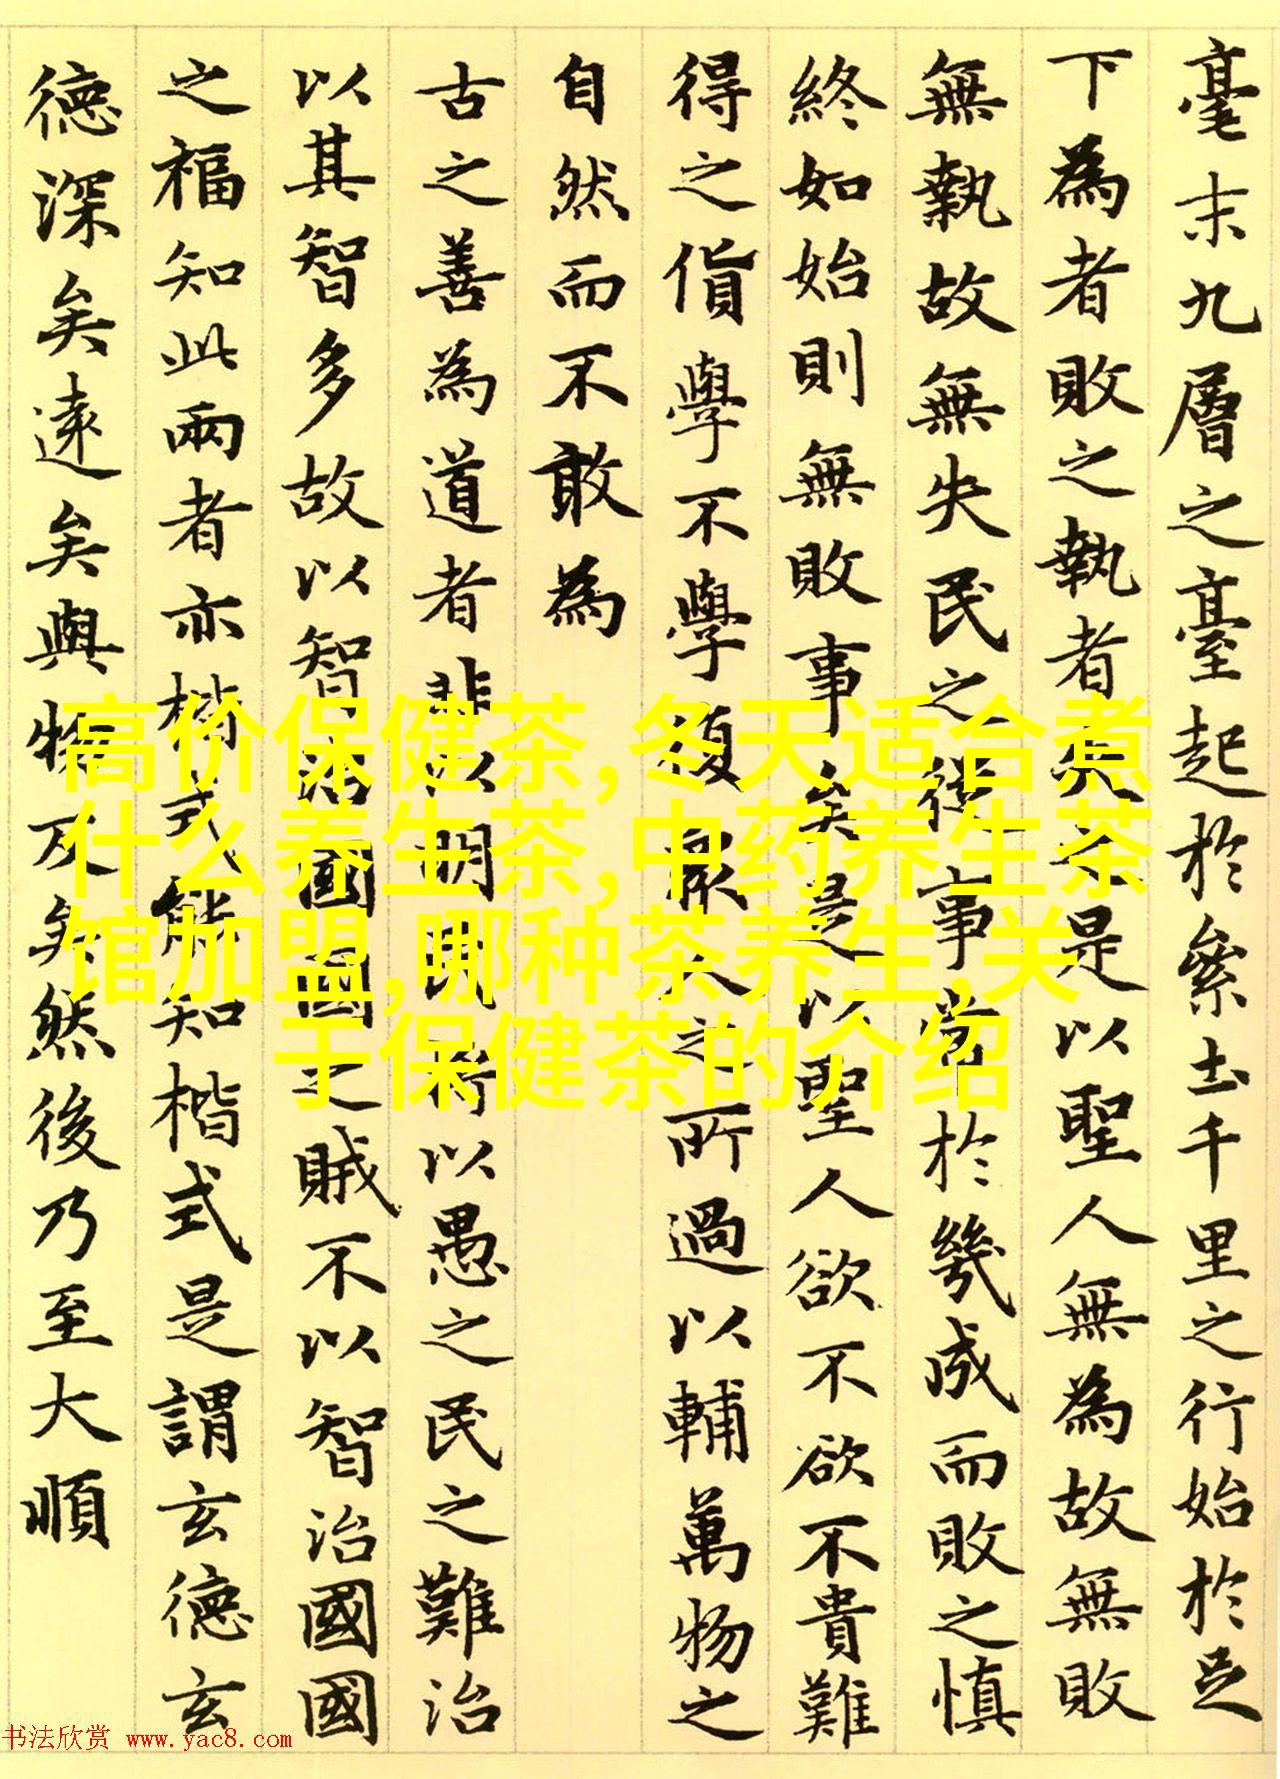 毫末九層之臺起於絫土千里之行始於足
下為者敗之執者失之是以聖人無為故無敗
無執故無失民之從事常於幾成而敗之慎
終如始則無敗事矣是以聖人欲不欲不貴難
得之貨學不學復衆人之所過以輔萬物之
自然而不敢為
古之善為道者非以明民將以愚之民之難治
以其智多故以智治國國之賊不以智治國國
之福知此兩者亦楷式能知楷式是謂玄德玄
德深矣遠矣與物反矣然後乃至大順
高价保健茶,冬天适合煮
什么养生茶,中药养生茶
馆加盟,哪种茶养生,关
于保健茶的介绍
书法欣赏 www.yac8.com